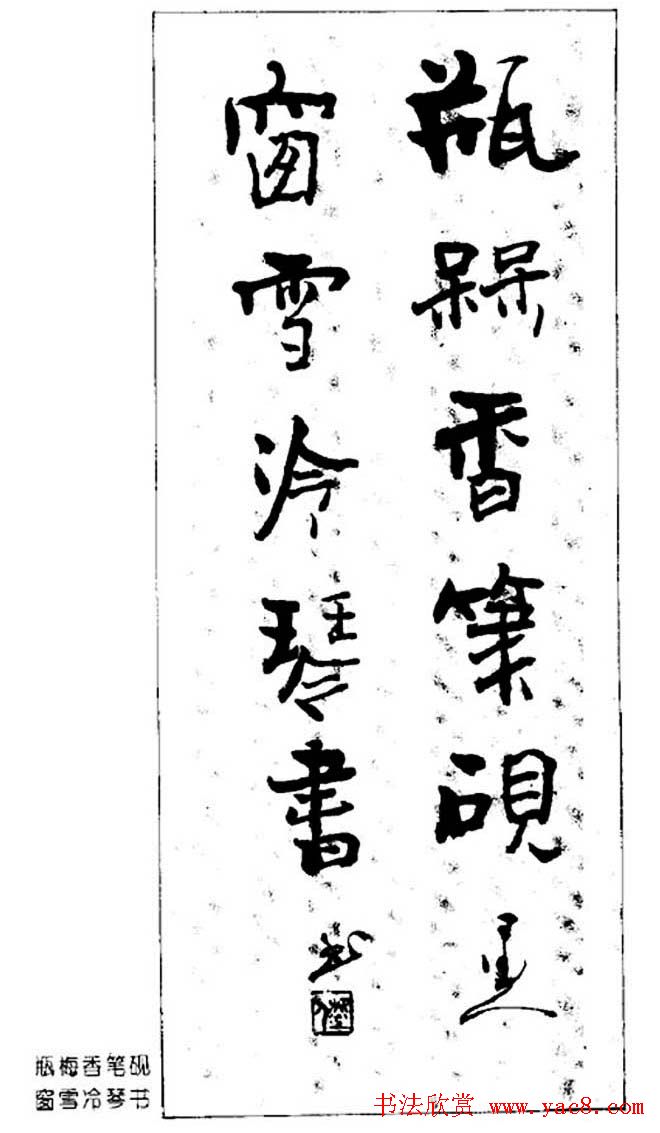 瓶槑香筆硯
窗雪冷琴書
瓶梅香笔砚
窗雪冷琴书
书法欣赏 www.yac8.com